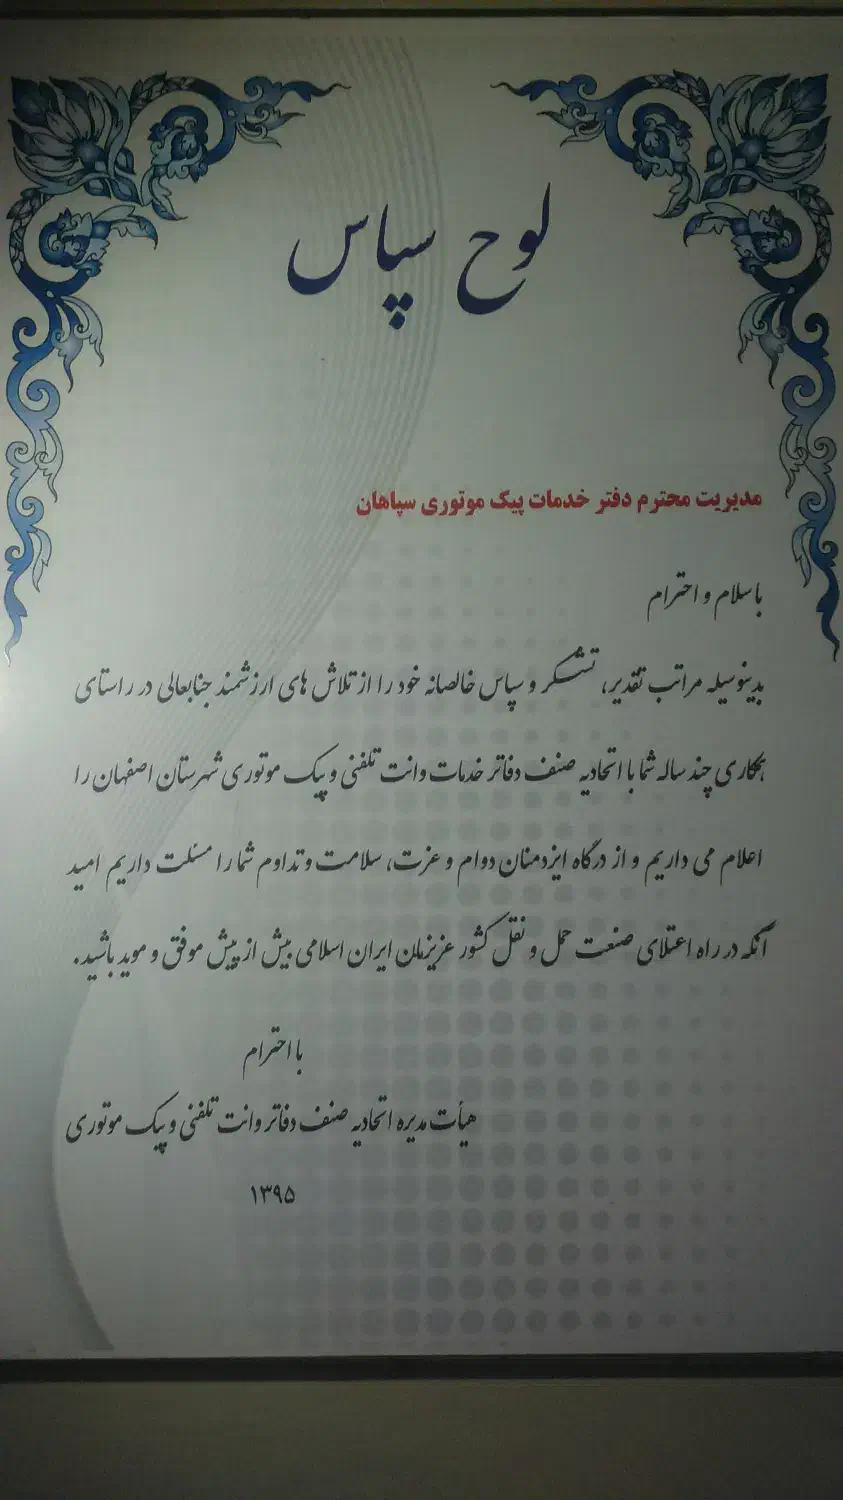 لوح سپاس
مدیریت محترم دفتر خدمات پیک موتوری سپاهان
با سلام و احترام
بدینوسیله مراتب تقدیر، تشکر و سپاس خالصانه خود را از تلاش های ارزشمند جنابعالی در راستای
همکاری چند ساله شما با اتحادیه صنف دفاتر خدمات وانت تلفنی و پیک موتوری شهرستان اصفهان را
اعلام می داریم و از درگاه ایزدمنان دوام و عزت، سلامت و تداوم شما را مسئلت داریم امید
آنکه در راه اعتلای صنعت حمل و نقل کشور عزیزمان ایران اسلامی بیش از پیش موفق و موید باشید.
با احترام
هیأت مدیره اتحادیه صنف دفاتر وانت تلفنی و پیک موتوری
۱۳۹۵